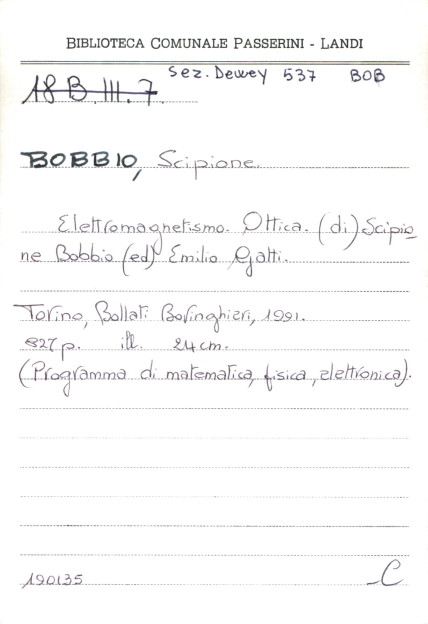 BIBLIOTECA COMUNALE PASSERINI - LANDI
18 B III. 7 Sez. Dewey 537 BOB
BOBBIO, Scipione.
Elettromagnetismo. Ottica. (di) Scipio
ne Bobbio (ed) Emilio Gatti.
Torino, Bollati Boringhieri, 1991.
827 p. ill. 24 cm.
(Programma di matematica, fisica, elettronica).
190135 C